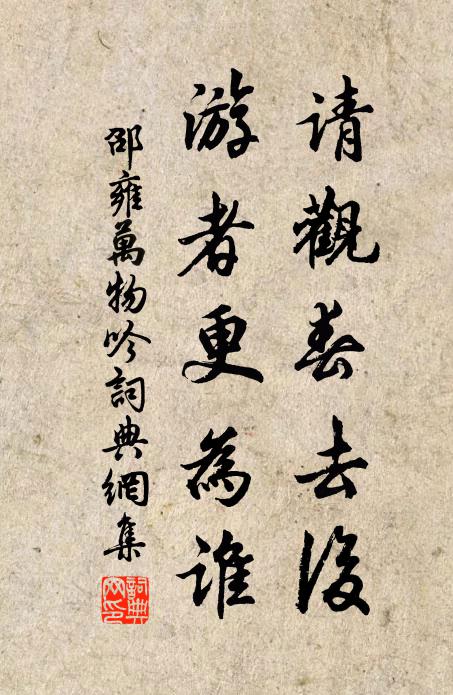 请觀春去後
游者更為誰
邵雍萬物吟詞典網集
詞典
网印